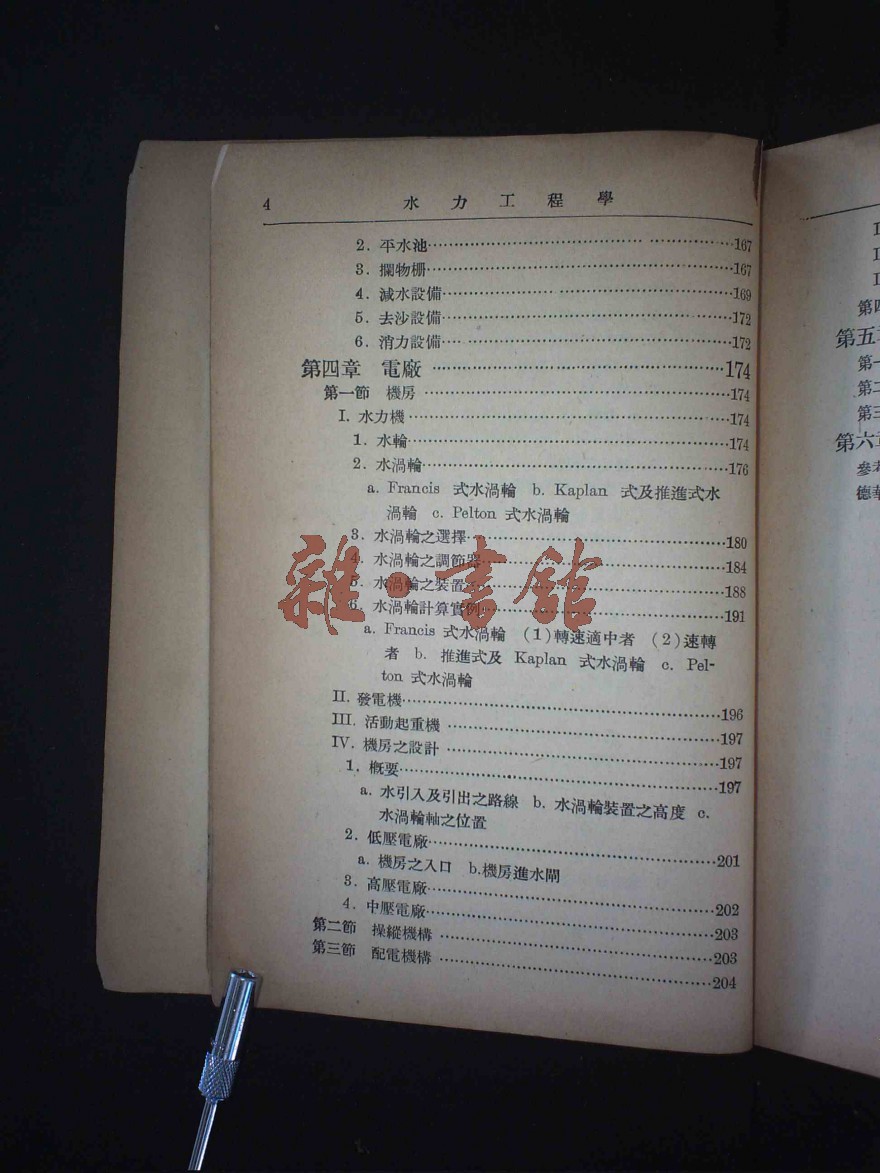 4 水力工程學
2. 平水池………167
3. 攔物栅………167
4. 減水設備………169
5. 去沙設備………172
6. 消力設備………172
第四章 電廠………174
第一節 機房………174
I. 水力機………174
1. 水輪………174
2. 水渦輪………176
a. Francis 式水渦輪 b. Kaplan 式及推進式水
渦輪 c. Pelton 式水渦輪
3. 水渦輪之選擇………180
4. 水渦輪之調節器………184
5. 水渦輪之裝置………188
6. 水渦輪計算實例………191
a. Francis 式水渦輪 (1)轉速適中者 (2)速轉
者 b. 推進式及 Kaplan 式水渦輪 c. Pel-
ton 式水渦輪
II. 發電機………196
III. 活動起重機………197
IV. 機房之設計………197
1. 概要………197
a. 水引入及引出之路線 b. 水渦輪裝置之高度 c.
水渦輪軸之位置
2. 低壓電廠………201
a. 機房之入口 b.機房進水閘
3. 高壓電廠………202
4. 中壓電廠………203
第二節 操縱機構………203
第三節 配電機構………204
雜·書館
第五
第一
第二
第三
第六